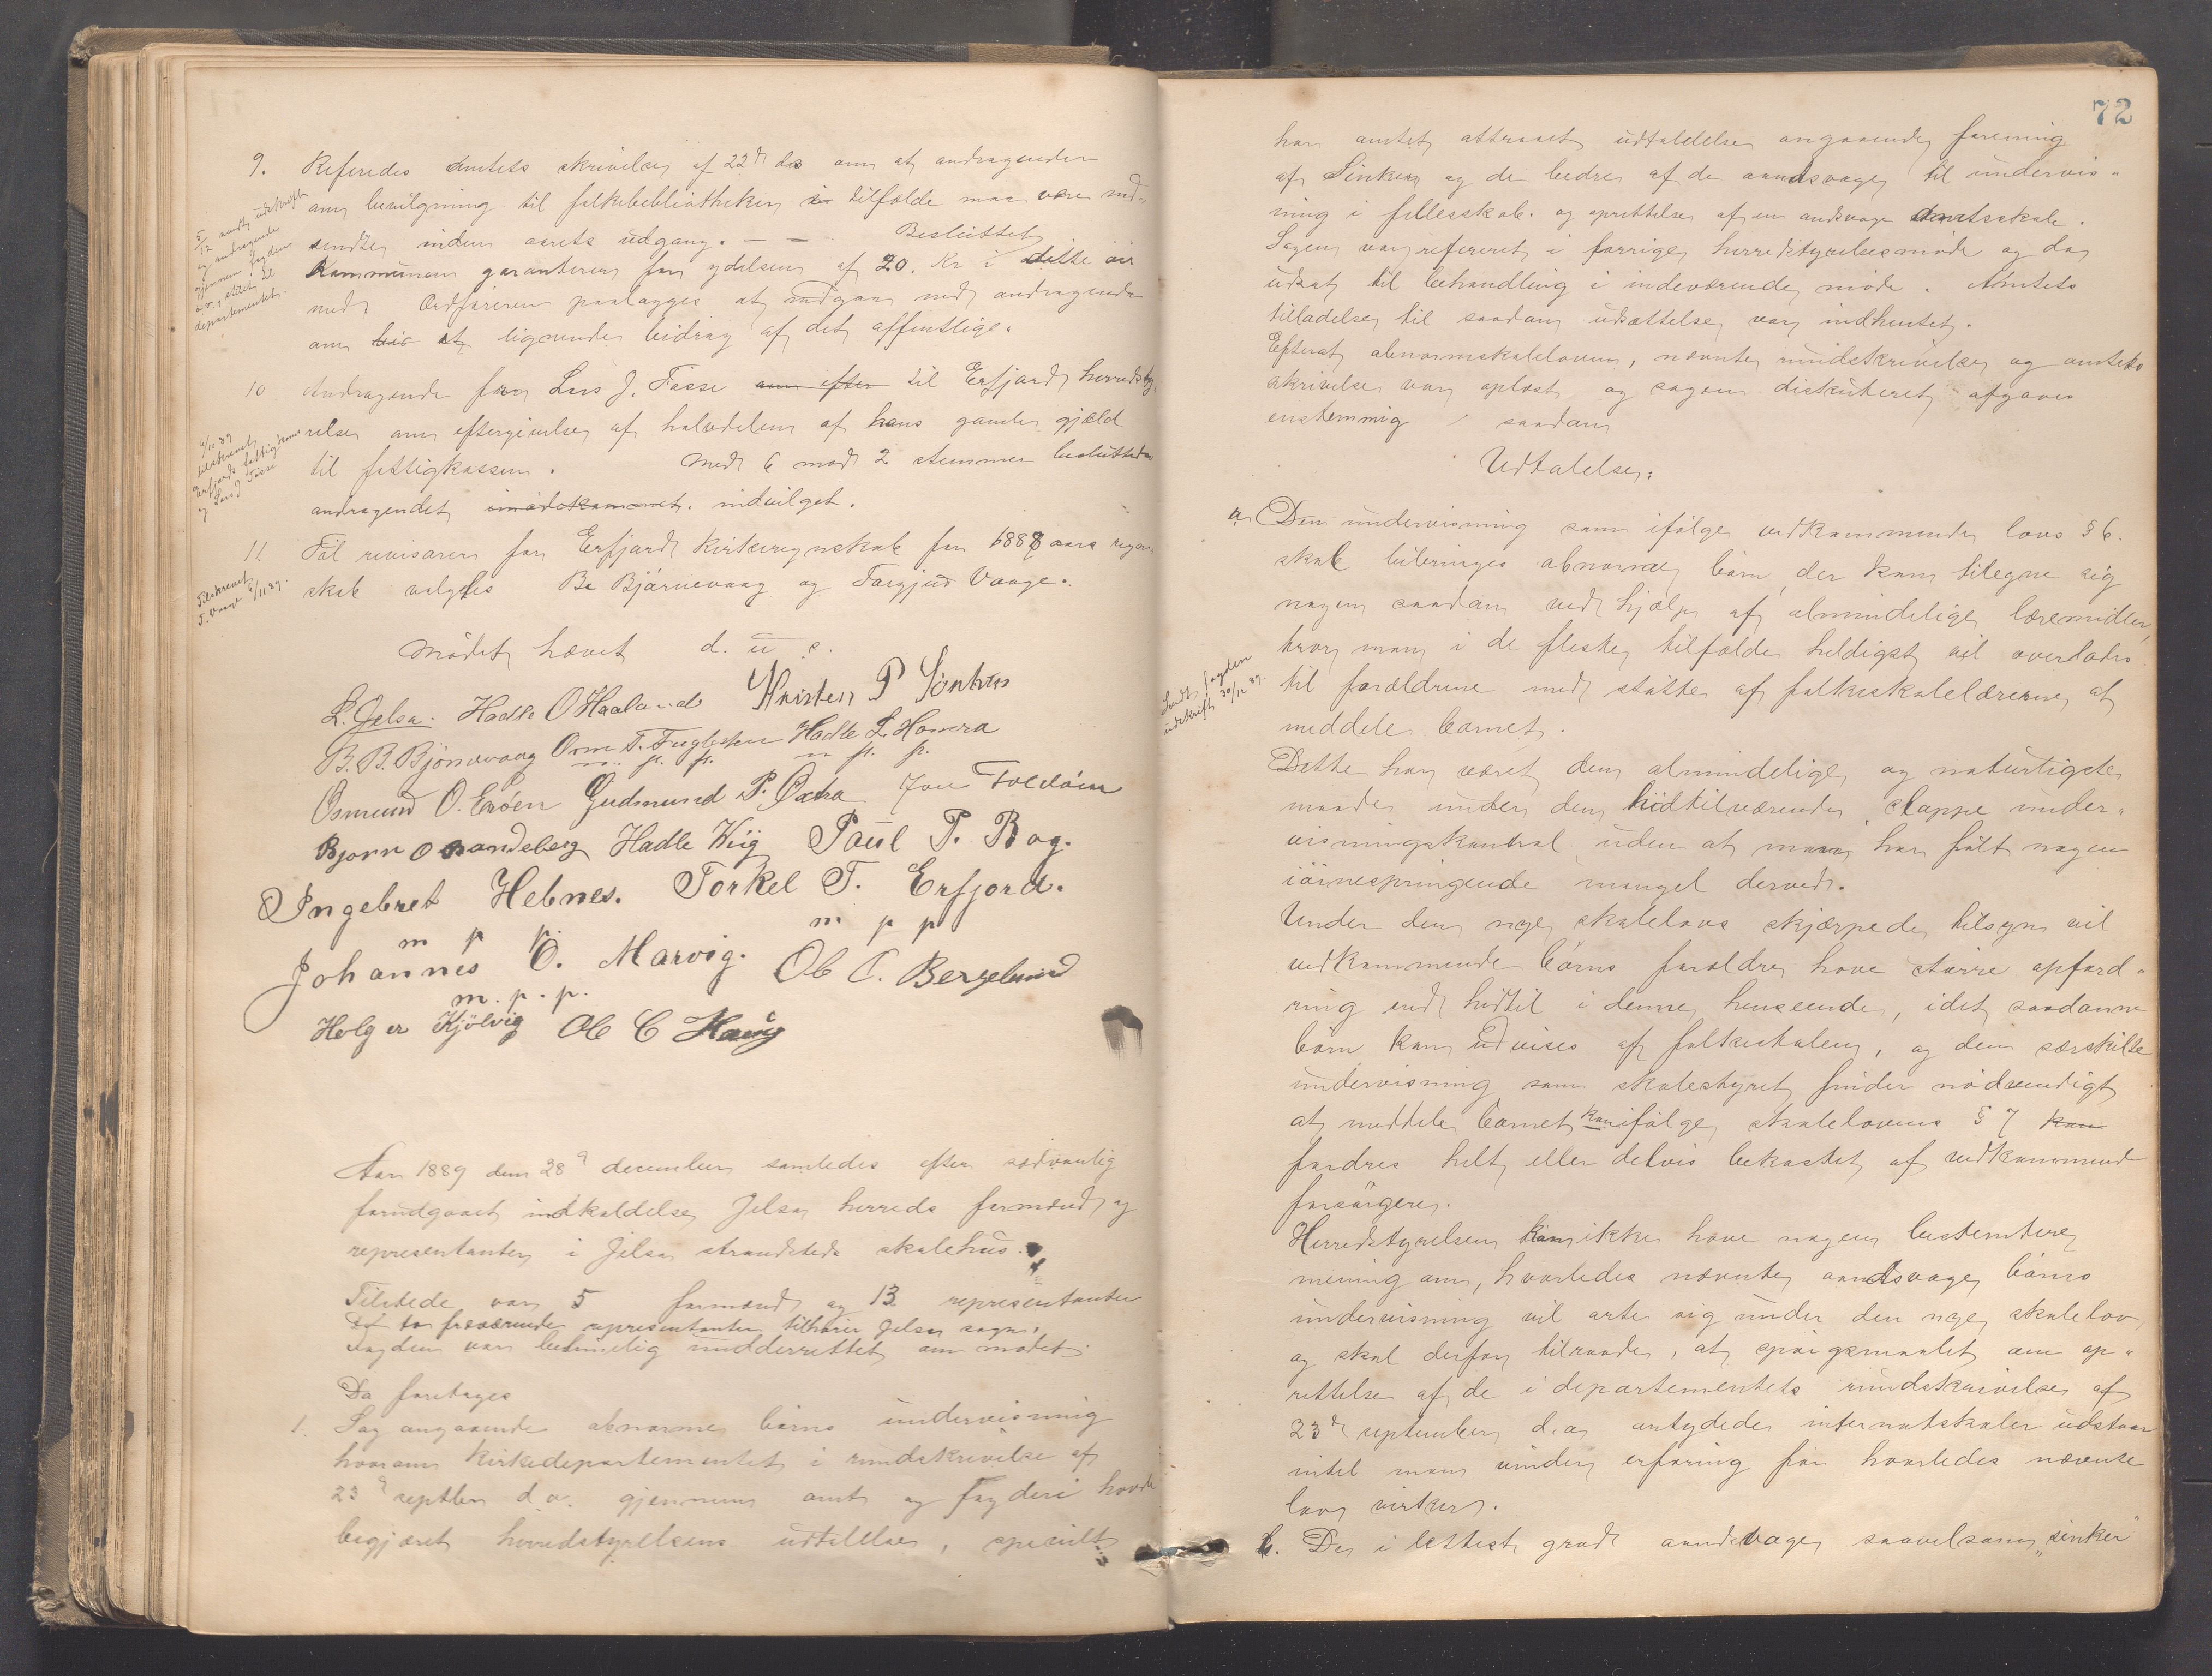 9. Referedes amtets skrivelse af 22d ds om at andragender
om bevilgning til folkebibliotheker i tilfælde maa være ind-
sendte inden aarets udgang. — — . Besluttet
Kommunen garanterer for ydelsen af 20. Kr i dette øie
med Ordføreren paalægges at indgaa med andragende
om lignende bidrag af det offentlige.
5/12 sendt udskrift
og andragende
gjennem fogden
departementet.
10 Andragende fra Lars J. Fosse om efter til Erfjord herredsty-
relse om eftergivelse af halvdelen af hans gamle gjæld
til fattigkassen. Med 6 mod 2 stemmer besluttedes
andragendet imødekommet. indvilget.
6/11 89
tilskrevet
Erfjords fattigkomm
og Lars J Fosse
11. Til revisorer for Erfjord kirkeregnskab for 1888 aars regn-
skab valgtes Be Bjørnevaag og Torgjus Vaage.
Tilskrevet
T. Vaage 6/11 89.
Mødet hævet d. u. s.
L. Jelsa. Hadle O Haaland Kristen P Sønhus
B. B. Bjørnevaag Orm T. Fuglesteen Hadle L. Homra
m. p. p. m p. p.
Osmund O. Erøen Gudmund P. Østrø Jon Foldøen
Bjørn O Sandsberg Hadle Wiig Paul P. Bog.
Ingebret Hebnes. Torkel T. Erfjord.
m p p. m p p
Johannes O. Marvig. Ole C. Bergelund
m. p. p.
Holger Kjölvig Ole C Haug
Aar 1889 den 28d december samledes efter sedvanlig
forudgaaet indkaldelse Jelsa herreds formænd og
representanter i Jelsa strandsteds skolehus.
Tilstede var 5 formænd og 13 representanter
De to fraværende representanter tilhører Jelsa sogn.
Fogden var betimelig underrettet om mødet.
Da foretages
1. Sag angaaende abnorme børns undervisning
hvorom kirkedepartementet i rundskrivelse af
23d septber d.a. gjennem amt og fogderi havde
begjæret herredstyrelsens udtalelse, specielt
72
har amtet attraaet udtalelse angaaende forening
af Sinker og de bedre af de aandsvage til undervis-
ning i fellesskab. og oprettelse af en andsvage amtsskole.
Sagen var refereret i forrige herredstyrelsesmøde og da
udsat til behandling i indeværende møde. Amtets
tilladelse til saadan udsættelse var indhentet.
Efterat abnormskoleloven, nævnte rundskrivelse og amtets
skrivelse var oplæst og sagen diskuteret afgaves
enstemmig saadan
Udtalelse:
a. Den undervisning som ifølge vedkommende lovs § 6.
skal bibringes abnorme børn, der kan tilegne sig
nogen saadan ved hjælp af almindelige læremidler,
tror man i de fleste tilfælde heldigst vil overlades
til forældrene med støtte af folkeskolelærerne at
meddele barnet.
Sendt fogden
udskrift 30/12 89.
Dette har været den almindelige og naturligste
maade under den hidtilværende slappe under-
visningskontrol uden at man har følt nogen
iøinespringende mangel derved.
Under den nye skolelovs skjærpede tilsyn vil
vedkommende børns forældre have større opford-
ring end hidtil i denne henseende, idet saadanne
børn kan udvises af folkeskolen, og den særskilte
undervisning som skolestyret finder nødvendigt
at meddele barnet kan ifølge skolelovens § 7 kan
fordres helt eller delvis bekostet af vedkommende
forsørgere.
Herredstyrelsen kan ikke have nogen bestemtere
mening om, hvorledes nævnte aandsvage børns
undervisning vil arte sig under den nye skolelov,
og skal derfor tilraade, at spørgsmaalet om op-
rettelse af de i departementets rundskrivelse af
23d september d.a. antydede internatskoler udstaar
intil man vinder erfaring for hvorledes nævnte
lov virker.
b. De i lettest grad aandsvage saavelsom „sinker"